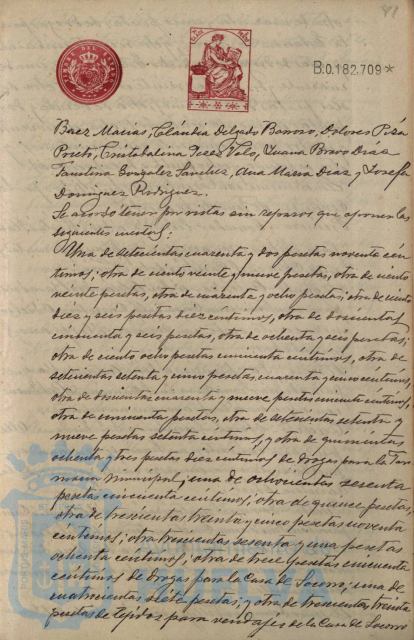 41
B.0.182.709*
Baez Macias, Cláudia Delgado Barroso, Dolores Piza
Prieto, Cristobalina Perez Valo, Juana Bravo Diaz
Faustina Gonzalez Sanchez, Ana Maria Diaz y Josefa
Dominguez Rodriguez.
Se acordó tener por vistas sin reparos que oponer las
siguientes cuentas:
Una de setecientas cuarenta y dos pesetas noventa cén
timos; otra de ciento veinte y nueve pesetas, otra de ciento
veinte pesetas, otra de cuarenta y ocho pesetas; otra de ciento
diez y seis pesetas diez centimos, otra de doscientas
cincuenta y seis pesetas, otra de ochenta y seis pesetas;
otra de ciento ocho pesetas cincuenta centimos, otra de
setecientas setenta y cinco pesetas cuarenta y cinco centimos,
otra de doscientas cuarenta y nueve pesetas centimos,
otra de cincuenta pesetas, otra de setecientas setenta y
nueve pesetas setenta centimos, y otra de quinientas
ochenta y tres pesetas diez centimos de drogas para la Far
macia Municipal; una de ochocientas sesenta
pesetas cincuenta centimos; otra de quince pesetas,
otra de trescientas treinta y cinco pesetas noventa
centimos; otra trescientas sesenta y una pesetas
ochenta céntimos; otra de trece pesetas cincuenta
centimos de drogas para la Casa de Socorro, una de
cuatrocientas siete pesetas; y otra de trescientas treinta
pesetas de tejidos para vendajes de la Casa de Socorro